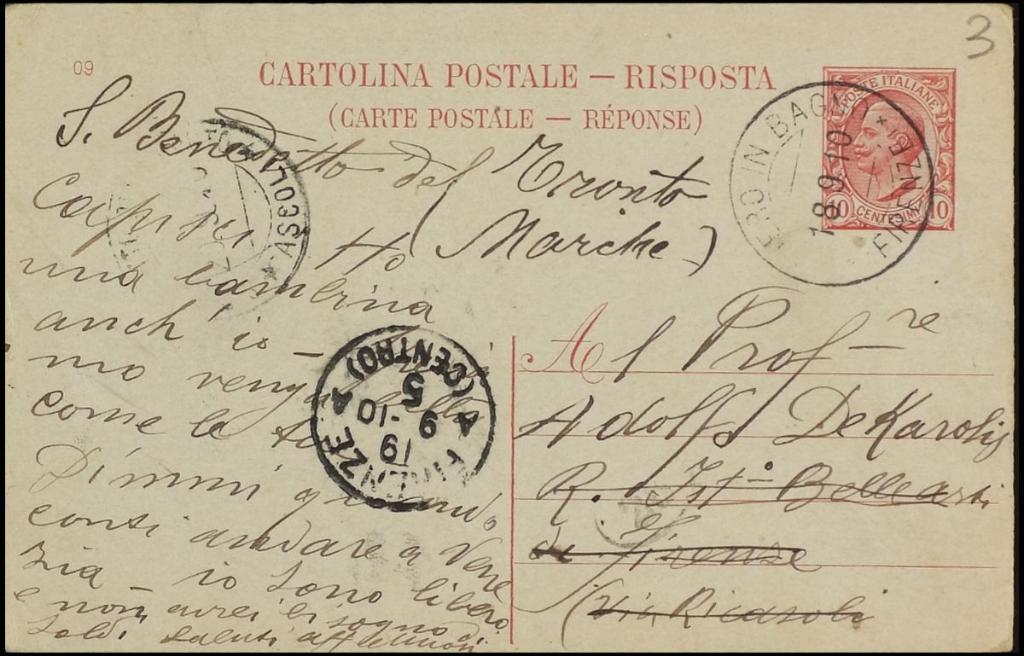 3
09
CARTOLINA POSTALE — RISPOSTA
(CARTE POSTALE — RÉPONSE)
POSTE ITALIANE
10 CENTESIMI 10
IN BAGN
18.9.10
FIRENZE
S. Benedetto del Tronto
(Marche)
ASCOLI
Ho
una bambina
anch' io —
come la
Dimmi quando
conti andare a Vene
zia — io sono libero
e non avrei bisogno di
soldi saluti
FIRENZE A
(CENTRO)
5
19
9-10
Al Prof re
Adolfo DeKarolis
R. Ist° Belle arti
di Firenze
(Via Ricasoli